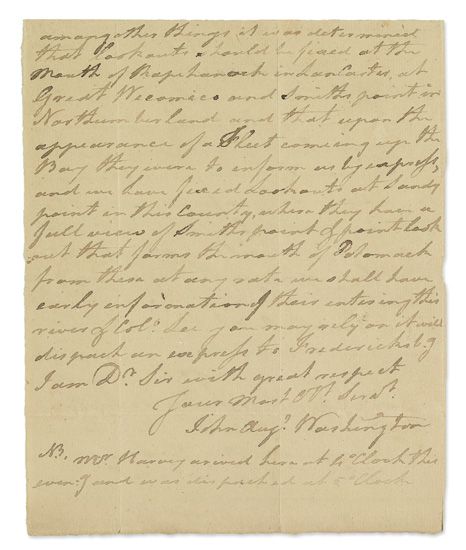 among other things it was determined
that Lookouts should be fixed at the
Mouth of Rapehanock in Lancaster, at
Great Wecomico and Smiths point in
Northumberland and that upon the
appearance of a Fleet coming up the
Bay they were to inform us by express,
and we have fixed Lookouts at Sandy
point in this County, where they have a
full view of Smiths point & point look
out that forms the mouth of Potomack
from these at any rate we shall have
early information of their entering this
river & Colo. Lee you may rely on it will
dispach an express to Fredericksbg
I am Dr. Sir with great respect
Your Most Ob. Servt.
John Augt. Washington
NB. Mr. Harvey arived here at Clock this
even:g and was dispached at Clock